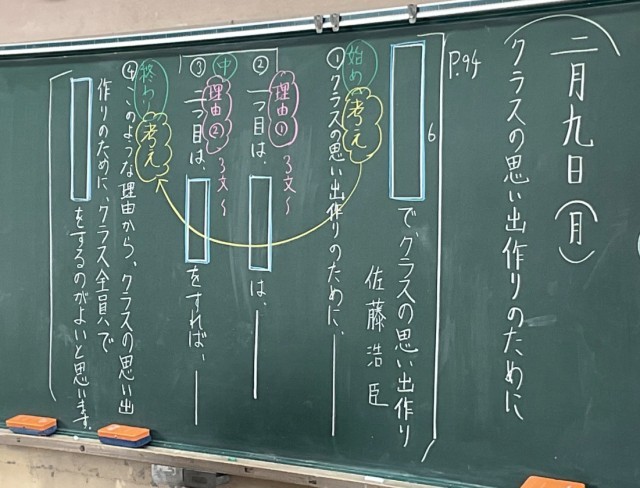 二月九日(月)
クラスの思い出作りのために
P.94
6
で、クラスの思い出作り
佐藤浩臣
始め
考え
①クラスの思い出作りのために、
中
理由①
3文〜
②一つ目は、
は、
理由②
3文〜
③二つ目は、
をすれば、
終わり
考え
④このような理由から、クラスの思い出
作りのために、クラス全員で
をするのがよいと思います。